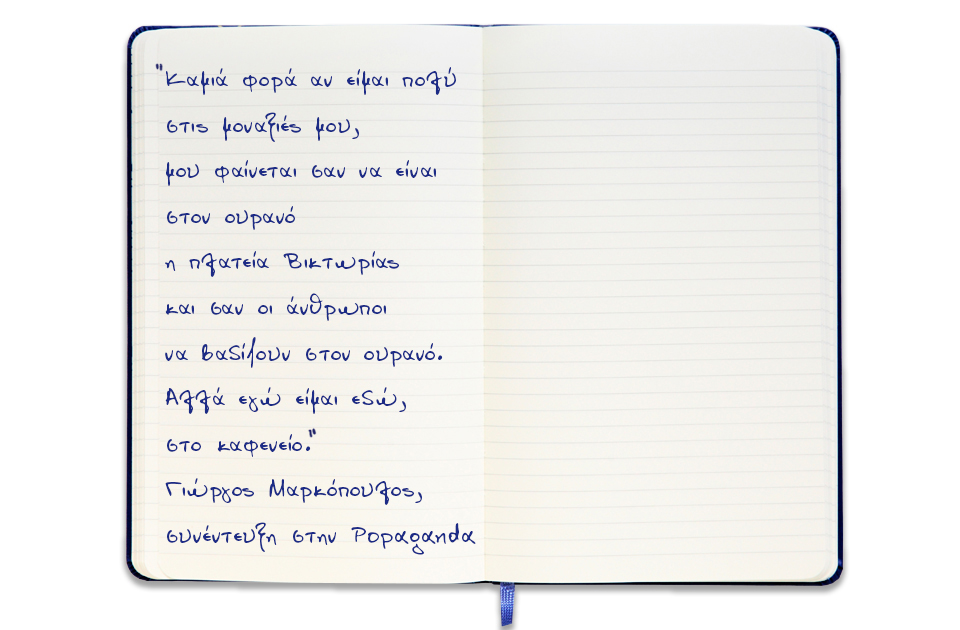 "Καμιά φορά αν είμαι πολύ
στις μοναξιές μου,
μου φαίνεται σαν να είναι
στον ουρανό
η πλατεία Βικτωρίας
και σαν οι άνθρωποι
να βαδίζουν στον ουρανό.
Αλλά εγώ είμαι εδώ,
στο καφενείο."
Γιώργος Μαρκόπουλος,
συνέντευξη στην Popaganda